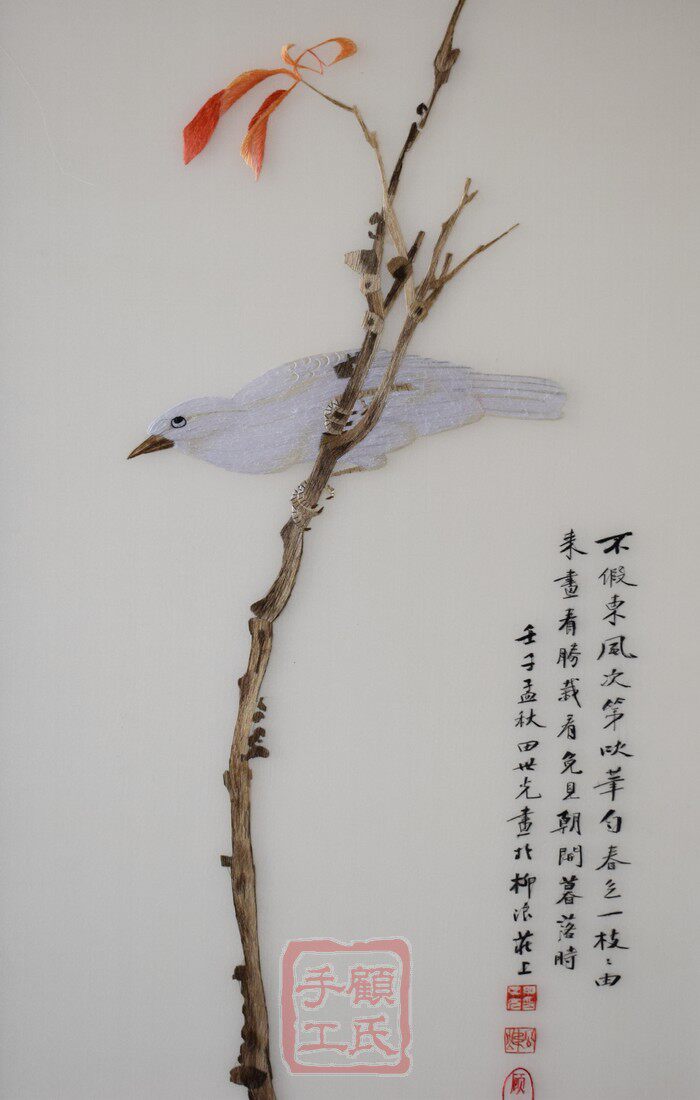 不假東風次第吹筆勻春色一枝〻由
来畫看勝栽看免見朝開暮落時
壬子孟秋田世光畫於柳浪莊上
顧氏
手工